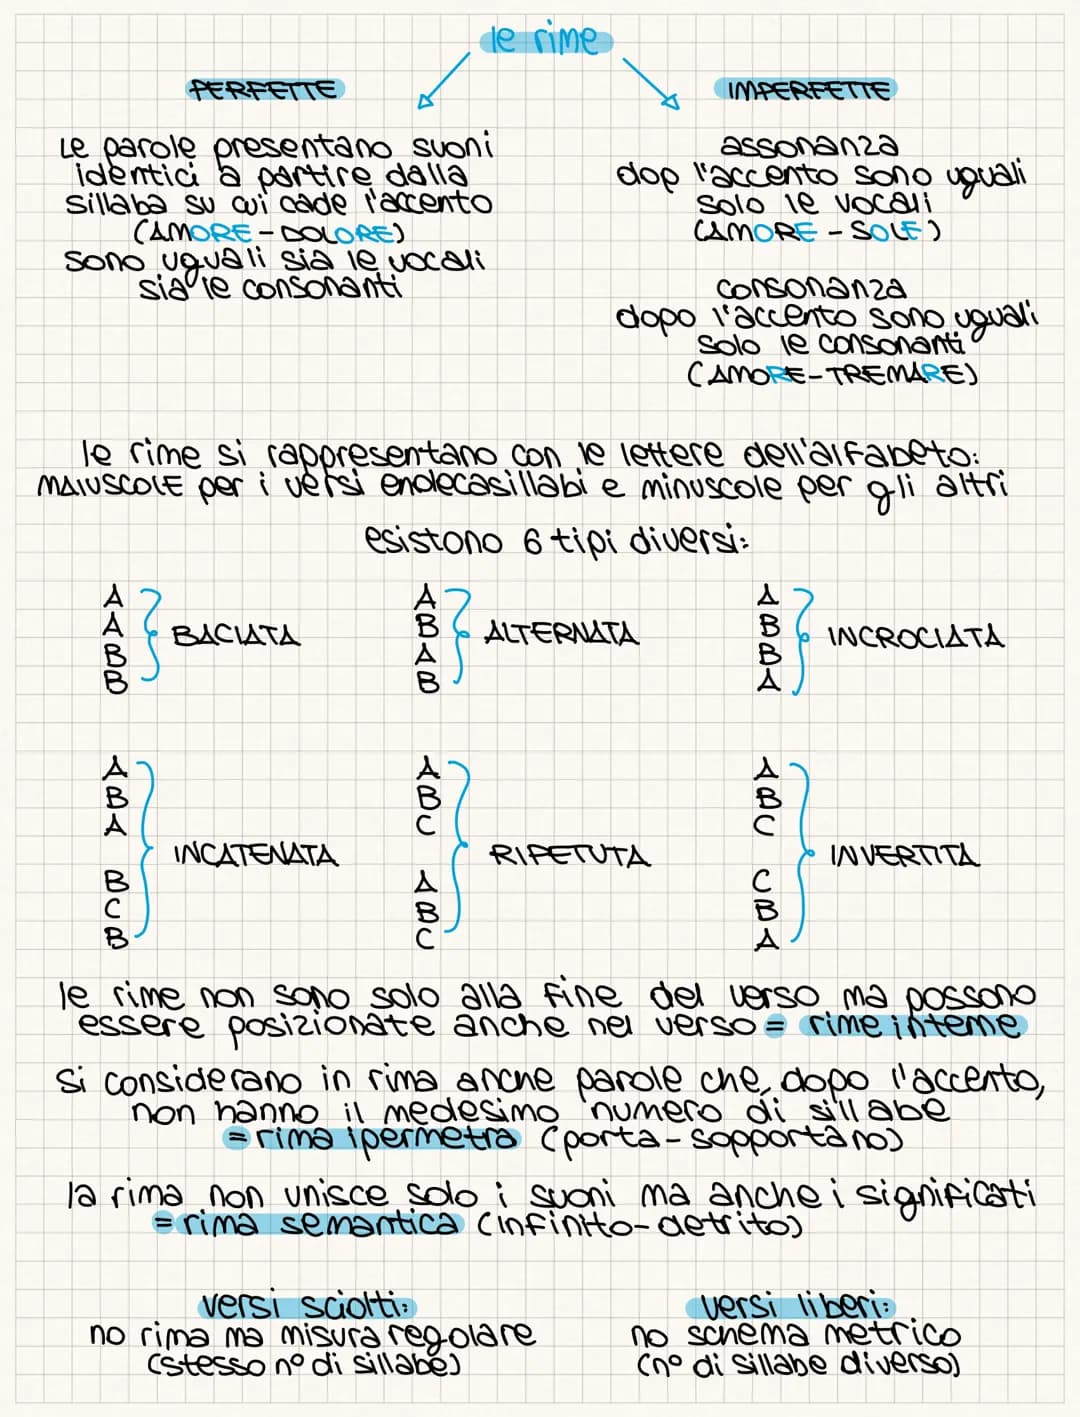 le rime
PERFETTE
Le parole presentano suoni
identici a partire dalla
sillaba su cui cade l'accento
(AMORE - DOLORE)
sono uguali sia le vocali
sia le consonanti
IMPERFETTE
assonanza
dop l'accento sono uguali
solo le vocali
(AMORE - SOLE)
consonanza
dopo l'accento sono uguali
solo le consonanti
(AMORE-TREMARE)
le rime si rappresentano con le lettere dell'alfabeto:
MAIUSCOLE per i versi endecasillabi e minuscole per gli altri
esistono 6 tipi diversi:
A
A
B
B
BACIATA
A
B
A
B
ALTERNATA
A
B
B
A
INCROCIATA
A
B
A
B
C
B
INCATENATA
A
B
C
A
B
C
RIPETUTA
A
B
C
C
B
A
INVERTITA
le rime non sono solo alla fine del verso ma possono
essere posizionate anche nel verso = rime interne
si considerano in rima anche parole che, dopo l'accento,
non hanno il medesimo numero di sillabe
= rima ipermetra (porta-sopportano)
la rima non unisce solo i suoni ma anche i significati
= rima semantica (infinito-detrito)
versi sciolti:
no rima ma misura regolare
(stesso n° di sillabe)
versi liberi:
no schema metrico
(n° di sillabe diverso)